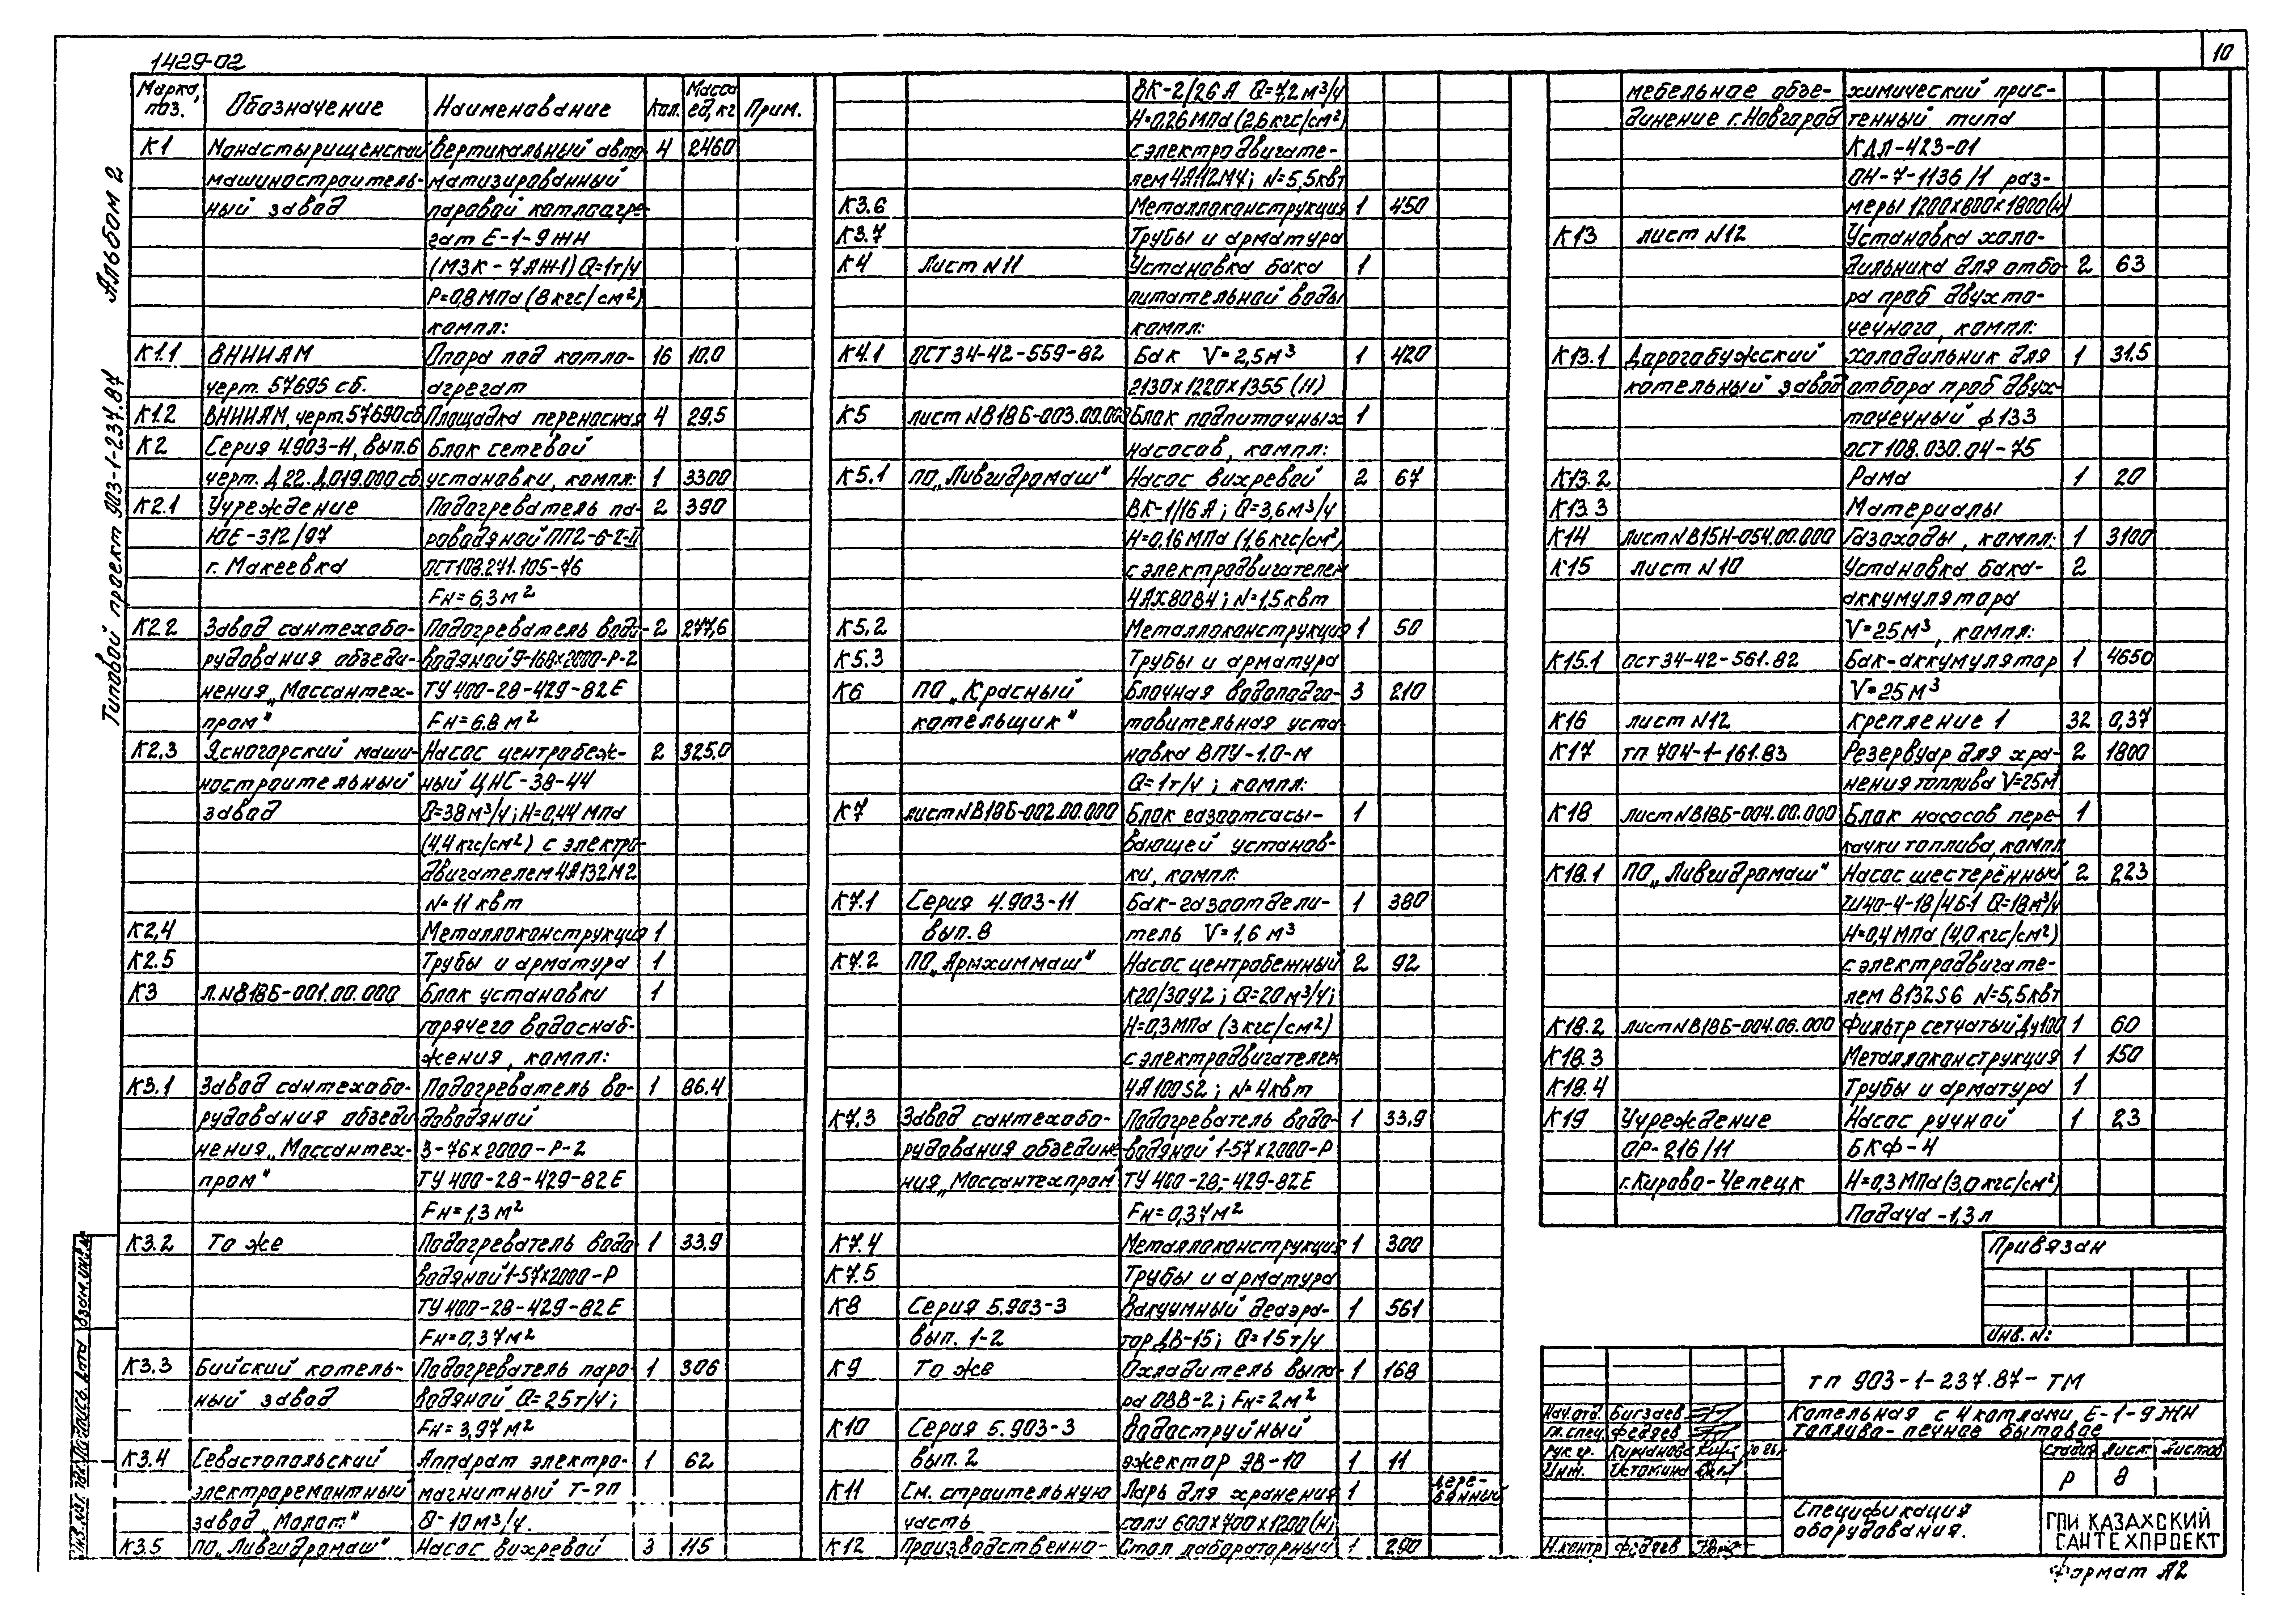 10
1429-02
Альбом 2
Типовой проект 903-1-237.87
Марка, поз. Обозначение Наименование Кол. Масса ед, кг Прим.
К1 Монастырищенский Вертикальный авто- 4 2460
машиностроитель- матизированный
ный завод паровой котлоагре-
гат Е-1-9ЖН
(МЗК-7АЖ-1) Q=1т/ч
Р=0,8МПа (8кгс/см²)
компл:
К1.1 ВНИИАМ Опора под котло- 16 10.0
черт. 57695 сб. агрегат
К1.2 ВНИИАМ, черт.57690сб Площадка переносная 4 29.5
К2 Серия 4.903-11, вып.6 Блок сетевой
черт. Д22.Д019.000сб установки, компл: 1 3300
К2.1 Учреждение Подогреватель па- 2 390
ЮЕ-312/97 роводяной ПП2-6-2-II
г. Макеевка ОСТ108.271.105-76
Fн=6,3м²
К2.2 Завод сантехобо- Подогреватель водо- 2 277,6
рудования объеди- водяной 9-168х2000-Р-2
нения „Моссантех- ТУ 400-28-429-82Е
пром" Fн=6.8м²
К2.3 Ясногорский маши- Насос центробеж- 2 325,0
ностроительный ный ЦНС-38-44
завод Q=38м³/ч; Н=0,44МПа
(4,4кгс/см²) с электро-
двигателем 4А132М2
N=11квт
К2,4 Металлоконструкция 1
К2.5 Трубы и арматура 1
К3 Л.NВ18Б-001.00.000 Блок установки 1
горячего водоснаб-
жения, компл:
К3.1 Завод сантехобо- Подогреватель во- 1 86.4
рудования объеди доводяной
нения „Моссантех- 3-76х2000-Р-2
пром" ТУ 400-28-429-82Е
Fн=1,3м²
К3.2 То же Подогреватель водо 1 33,9
водяной 1-57х2000-Р
ТУ 400-28-429-82Е
Fн=0,37м²
К3.3 Бийский котель- Подогреватель паро 1 306
ный завод водяной Q=25т/ч;
Fн=3,97м²
К3.4 Севастопольский Аппарат электро- 1 62
электроремонтный магнитный Т-ЭП
завод „Молот" Q-10м³/ч.
К3.5 ПО „Ливгидромаш" Насос вихревой 3 115
ВК-2/26А Q=7,2м³/ч
Н=0,26МПа (2,6кгс/см²)
с электродвигате-
лем 4А112М4; N=5,5квт
К3.6 Металлоконструкция 1 450
К3.7 Трубы и арматура
К4 Лист N11 Установка бака 1
питательной воды
компл:
К4.1 ОСТ34-42-559-82 Бак V=2,5м³ 1 420
2130х1220х1355 (Н)
К5 лист NВ18Б-003.00.000 Блок подпиточных 1
насосов, компл:
К5.1 ПО „Ливгидромаш" Насос вихревой 2 67
ВК-1/16А; Q=3,6м³/ч
Н=0,16МПа (1,6кгс/см²)
с электродвигателем
4АХ80В4; N=1,5квт
К5,2 Металлоконструкция 1 50
К5.3 Трубы и арматура
К6 ПО „Красный Блочная водоподго- 3 210
котельщик" товительная уста
новка ВПУ-1.0-М
Q=1т/ч; компл:
К7 лист NВ18Б-002.00.000 Блок газоотсасы- 1
вающей установ-
ки, компл:
К7.1 Серия 4.903-11 Бак-газоотдели- 1 380
вып. 8 тель V=1,6м³
К7.2 ПО „Армхиммаш" Насос центробежный 2 92
К20/30У2; Q=20м³/ч;
Н=0,3МПа (3кгс/см²)
с электродвигателем
4А100S2; N=4квт
К7,3 Завод сантехобо- Подогреватель водо- 1 33,9
рудования объедине- водяной 1-57х2000-Р
ния „Моссантехпром" ТУ 400-28-429-82Е
Fн=0,37м²
К7.4 Металлоконструкция 1 300
К7.5 Трубы и арматура
К8 Серия 5.903-3 Вакуумный деаэра- 1 561
вып. 1-2 тор ДВ-15; Q=15т/ч
К9 То же Охладитель выпа- 1 168
ра ОВВ-2; Fн=2м²
К10 Серия 5.903-3 Водоструйный
вып. 2 эжектор ЭВ-10 1 11
К11 См. строительную Ларь для хранения 1 дере-
часть соли 600х700х1200(н) вянный
К12 Производственно- Стол лабораторный 1 290
мебельное объе- химический прис-
динение г.Новгород тенный типа
КДЛ-423-01
ОН-7-1136/1 раз-
меры 1200х800х1800(н)
К13 лист N12 Установка холо-
дильника для отбо- 2 63
ра проб двухто-
чечного, компл:
К13.1 Дорогобужский холодильник для 1 31.5
котельный завод отбора проб двух-
точечный ф133
ОСТ108.030.04-75
К13.2 Рама 1 20
К13.3 Материалы
К14 лист NВ15Н-054.00.000 Газоходы, компл: 1 3100
К15 лист N10 Установка бака- 2
аккумулятора
V=25м³, компл:
К15.1 ОСТ34-42-561.82 Бак-аккумулятор 1 4650
V=25м³
К16 лист N12 Крепление 1 32 0,37
К17 тп 704-1-161.83 Резервуар для хра- 2 1800
нения топлива V=25м³
К18 лист NВ18Б-004.00.000 Блок насосов пере- 1
качки топлива, компл
К18.1 ПО „Ливгидромаш" Насос шестерённый 2 223
Ш40-4-18/4Б-1 Q=18м³/ч
Н=0,4МПа (4,0кгс/см²)
с электродвигате-
лем В132S6 N=5,5квт
К18.2 лист NВ18Б-004.06.000 Фильтр сетчатый Ду100 1 60
К18.3 Металлоконструкция 1 150
К18.4 Трубы и арматура 1
К19 Учреждение Насос ручной 1 23
ОР-216/11 БКФ-4
г.Кирово-Чепецк Н=0,3МПа (3,0кгс/см²)
Подача -1,3л
Привязан
Инв. N:
тп 903-1-237.87-ТМ
Котельная с 4 котлами Е-1-9ЖН
топливо-печное бытовое
Нач.отд. Бигзаев
Гл.спец. Федяев
Рук.гр.
Инж. Истомина
Н.контр Федяев
Стадия Лист Листов
Р 8
Спецификация
оборудования.
ГПИ КАЗАХСКИЙ
САНТЕХПРОЕКТ
Формат А2
Инв.N подл. Подпись. Дата Взам.инв.N